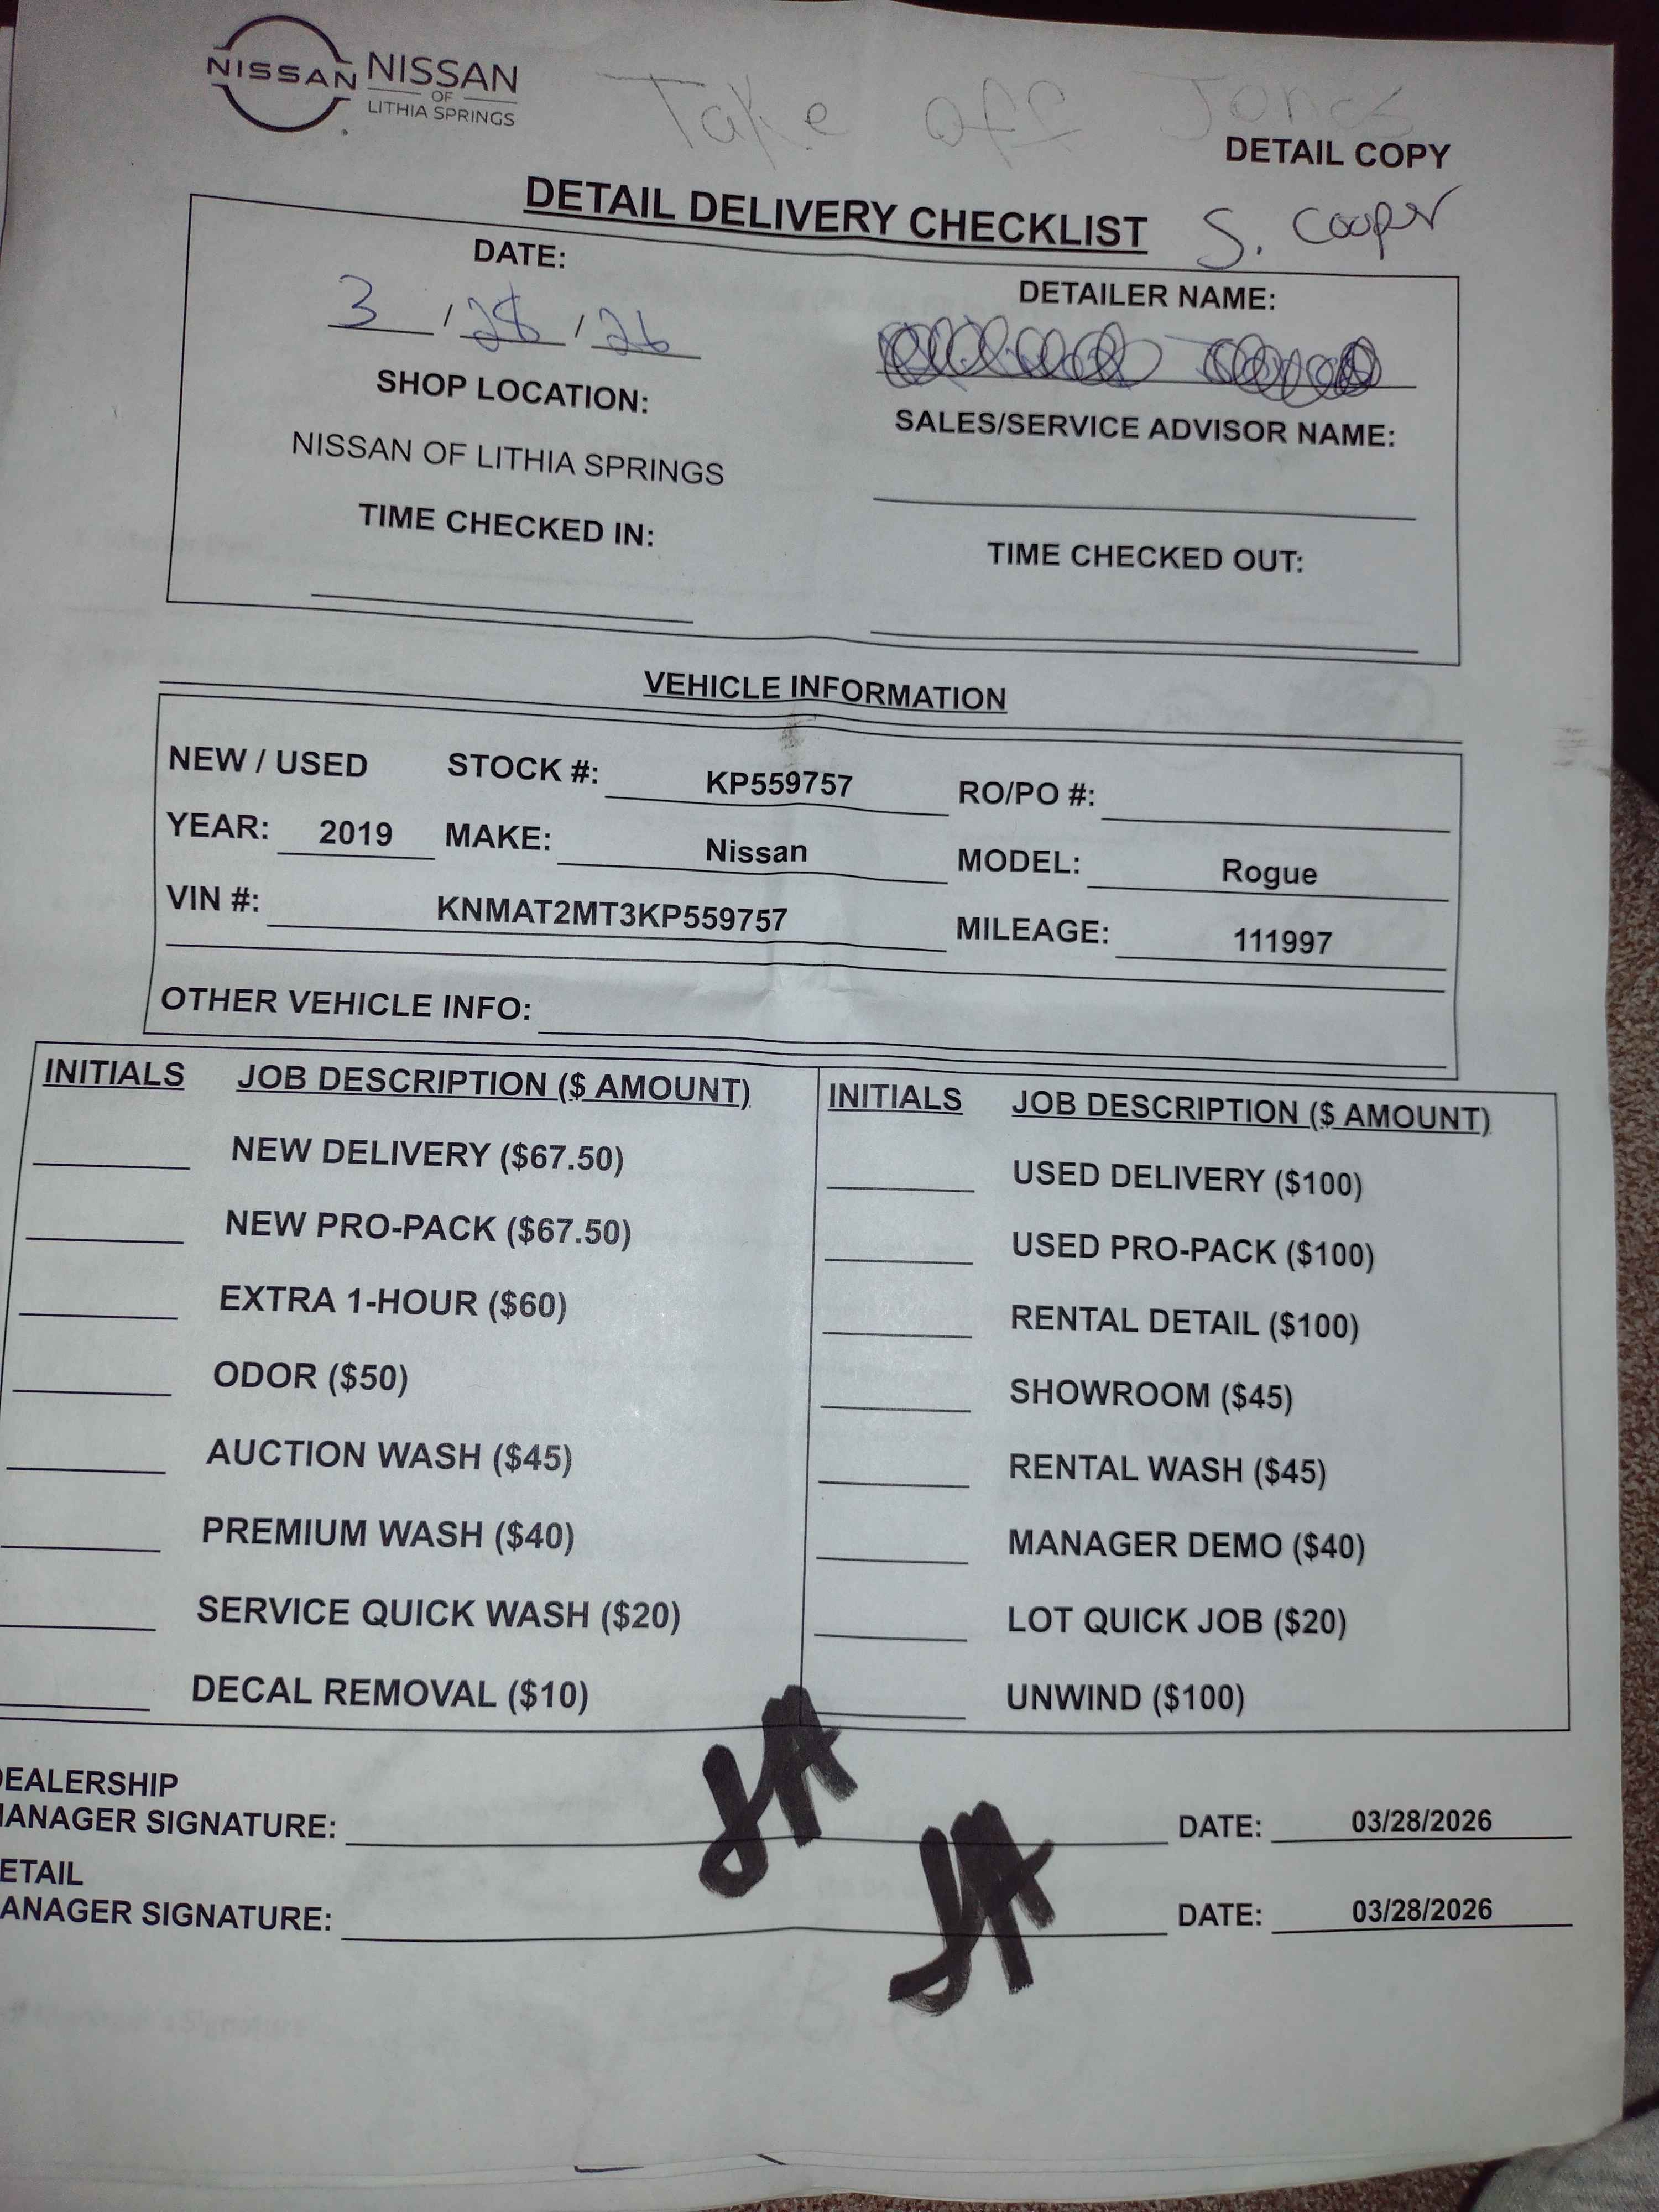 NISSAN NISSAN
OF
LITHIA SPRINGS
Take off Jones
DETAIL COPY
DETAIL DELIVERY CHECKLIST S. Cooper
DATE:
3 / 28 / 26
DETAILER NAME:
SHOP LOCATION:
NISSAN OF LITHIA SPRINGS
SALES/SERVICE ADVISOR NAME:
TIME CHECKED IN:
TIME CHECKED OUT:
VEHICLE INFORMATION
NEW / USED STOCK #: KP559757 RO/PO #:
YEAR: 2019 MAKE: Nissan MODEL: Rogue
VIN #: KNMAT2MT3KP559757 MILEAGE: 111997
OTHER VEHICLE INFO:
INITIALS JOB DESCRIPTION ($ AMOUNT)
NEW DELIVERY ($67.50)
NEW PRO-PACK ($67.50)
EXTRA 1-HOUR ($60)
ODOR ($50)
AUCTION WASH ($45)
PREMIUM WASH ($40)
SERVICE QUICK WASH ($20)
DECAL REMOVAL ($10)
INITIALS JOB DESCRIPTION ($ AMOUNT)
USED DELIVERY ($100)
USED PRO-PACK ($100)
RENTAL DETAIL ($100)
SHOWROOM ($45)
RENTAL WASH ($45)
MANAGER DEMO ($40)
LOT QUICK JOB ($20)
UNWIND ($100)
DEALERSHIP
MANAGER SIGNATURE: DATE: 03/28/2026
ETAIL
ANAGER SIGNATURE: DATE: 03/28/2026